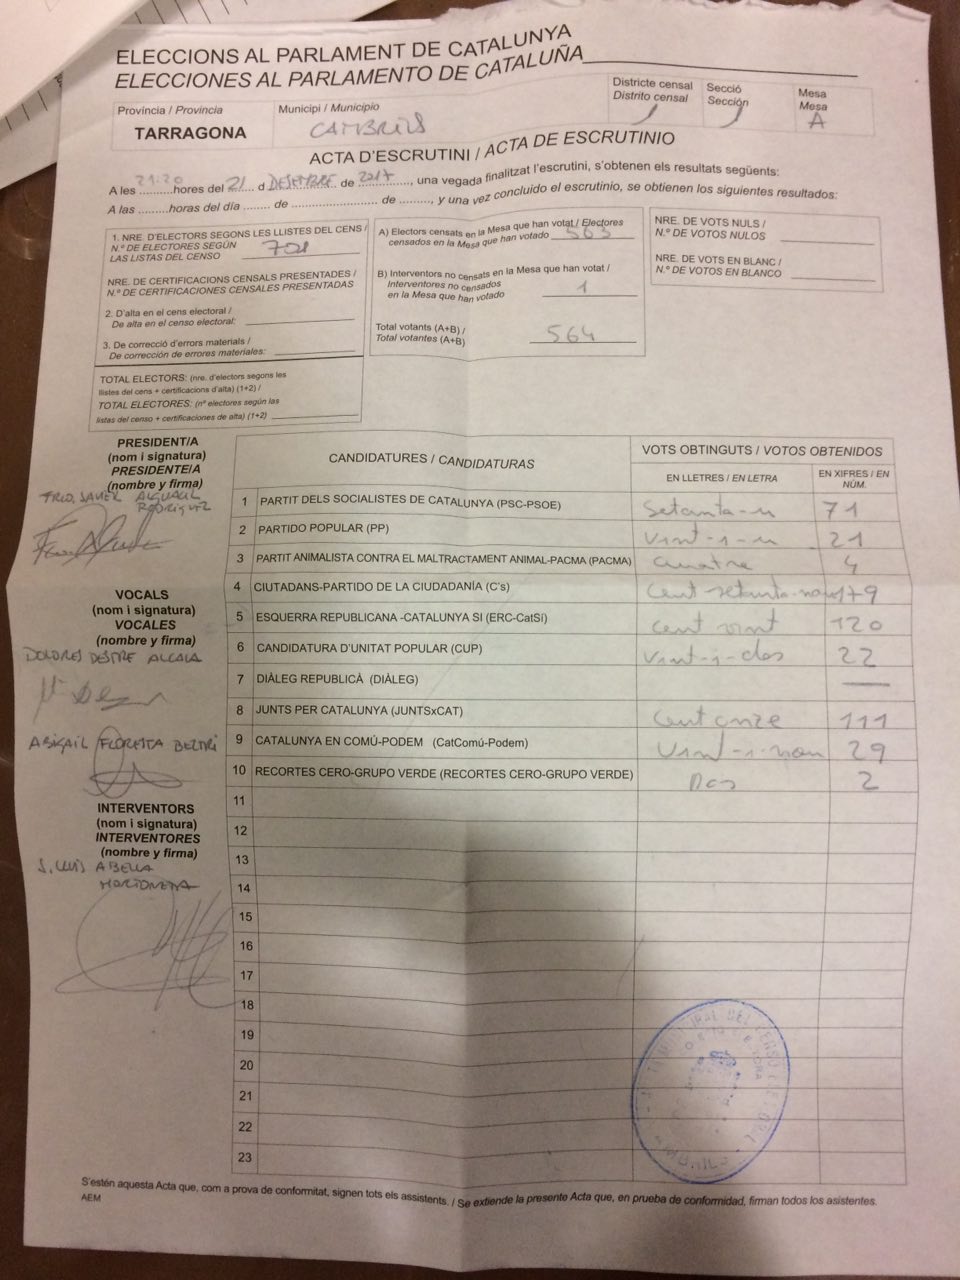 ELECCIONS AL PARLAMENT DE CATALUNYA
ELECCIONES AL PARLAMENTO DE CATALUÑA
Província / Provincia
TARRAGONA
Municipi / Municipio
CAMBRILS
Districte censal
Distrito censal
1
Secció
Sección
1
Mesa
Mesa
A
ACTA D'ESCRUTINI / ACTA DE ESCRUTINIO
A les 21:20 hores del 21 d DESEMBRE de 2017, una vegada finalitzat l'escrutini, s'obtenen els resultats següents:
A las ......... horas del día ........ de ........................ de ........, y una vez concluido el escrutinio, se obtienen los siguientes resultados:
1. NRE. D'ELECTORS SEGONS LES LLISTES DEL CENS /
N.º DE ELECTORES SEGÚN
LAS LISTAS DEL CENSO 701
NRE. DE CERTIFICACIONS CENSALS PRESENTADES /
N.º DE CERTIFICACIONES CENSALES PRESENTADAS
2. D'alta en el cens electoral /
De alta en el censo electoral:
3. De correcció d'errors materials /
De corrección de errores materiales:
TOTAL ELECTORS: (nre. d'electors segons les
llistes del cens + certificacions d'alta) (1+2) /
TOTAL ELECTORES: (nº electores según las
listas del censo + certificaciones de alta) (1+2)
A) Electors censats en la Mesa que han votat / Electores
censados en la Mesa que han votado 563
B) Interventors no censats en la Mesa que han votat /
Interventores no censados
en la Mesa que han votado 1
Total votants (A+B) /
Total votantes (A+B) 564
NRE. DE VOTS NULS /
N.º DE VOTOS NULOS
NRE. DE VOTS EN BLANC /
N.º DE VOTOS EN BLANCO
PRESIDENT/A
(nom i signatura)
PRESIDENTE/A
(nombre y firma)
JAVIER ALGUACIL
RODRIGUEZ
VOCALS
(nom i signatura)
VOCALES
(nombre y firma)
DOLORES DESTRE ALCALA
ABIGAIL FLORESTA BELTRI
INTERVENTORS
(nom i signatura)
INTERVENTORES
(nombre y firma)
J. LLUIS ABELLA
CANDIDATURES / CANDIDATURAS
VOTS OBTINGUTS / VOTOS OBTENIDOS
EN LLETRES / EN LETRA
EN XIFRES / EN
NÚM.
1 PARTIT DELS SOCIALISTES DE CATALUNYA (PSC-PSOE) Setanta-u 71
2 PARTIDO POPULAR (PP) Vint-i-u 21
3 PARTIT ANIMALISTA CONTRA EL MALTRACTAMENT ANIMAL-PACMA (PACMA) cuatre 4
4 CIUTADANS-PARTIDO DE LA CIUDADANÍA (C's) Cent setanta-nou 179
5 ESQUERRA REPUBLICANA -CATALUNYA SI (ERC-CatSí) cent vint 120
6 CANDIDATURA D'UNITAT POPULAR (CUP) Vint-i-dos 22
7 DIÀLEG REPUBLICÀ (DIÀLEG) —
8 JUNTS PER CATALUNYA (JUNTSxCAT) Cent onze 111
9 CATALUNYA EN COMÚ-PODEM (CatComú-Podem) Vint-i-nou 29
10 RECORTES CERO-GRUPO VERDE (RECORTES CERO-GRUPO VERDE) Dos 2
11
12
13
14
15
16
17
18
19
20
21
22
23
S'estén aquesta Acta que, com a prova de conformitat, signen tots els assistents. / Se extiende la presente Acta que, en prueba de conformidad, firman todos los asistentes.
AEM